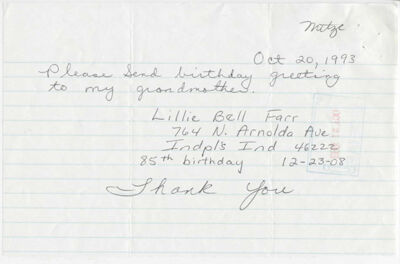 Metze
Oct 20, 1993
Please Send birthday greeting
to my grandmother.
Lillie Bell Farr
764 N. Arnolda Ave
Indpl's Ind 46222
85th birthday 12-23-08
Thank You